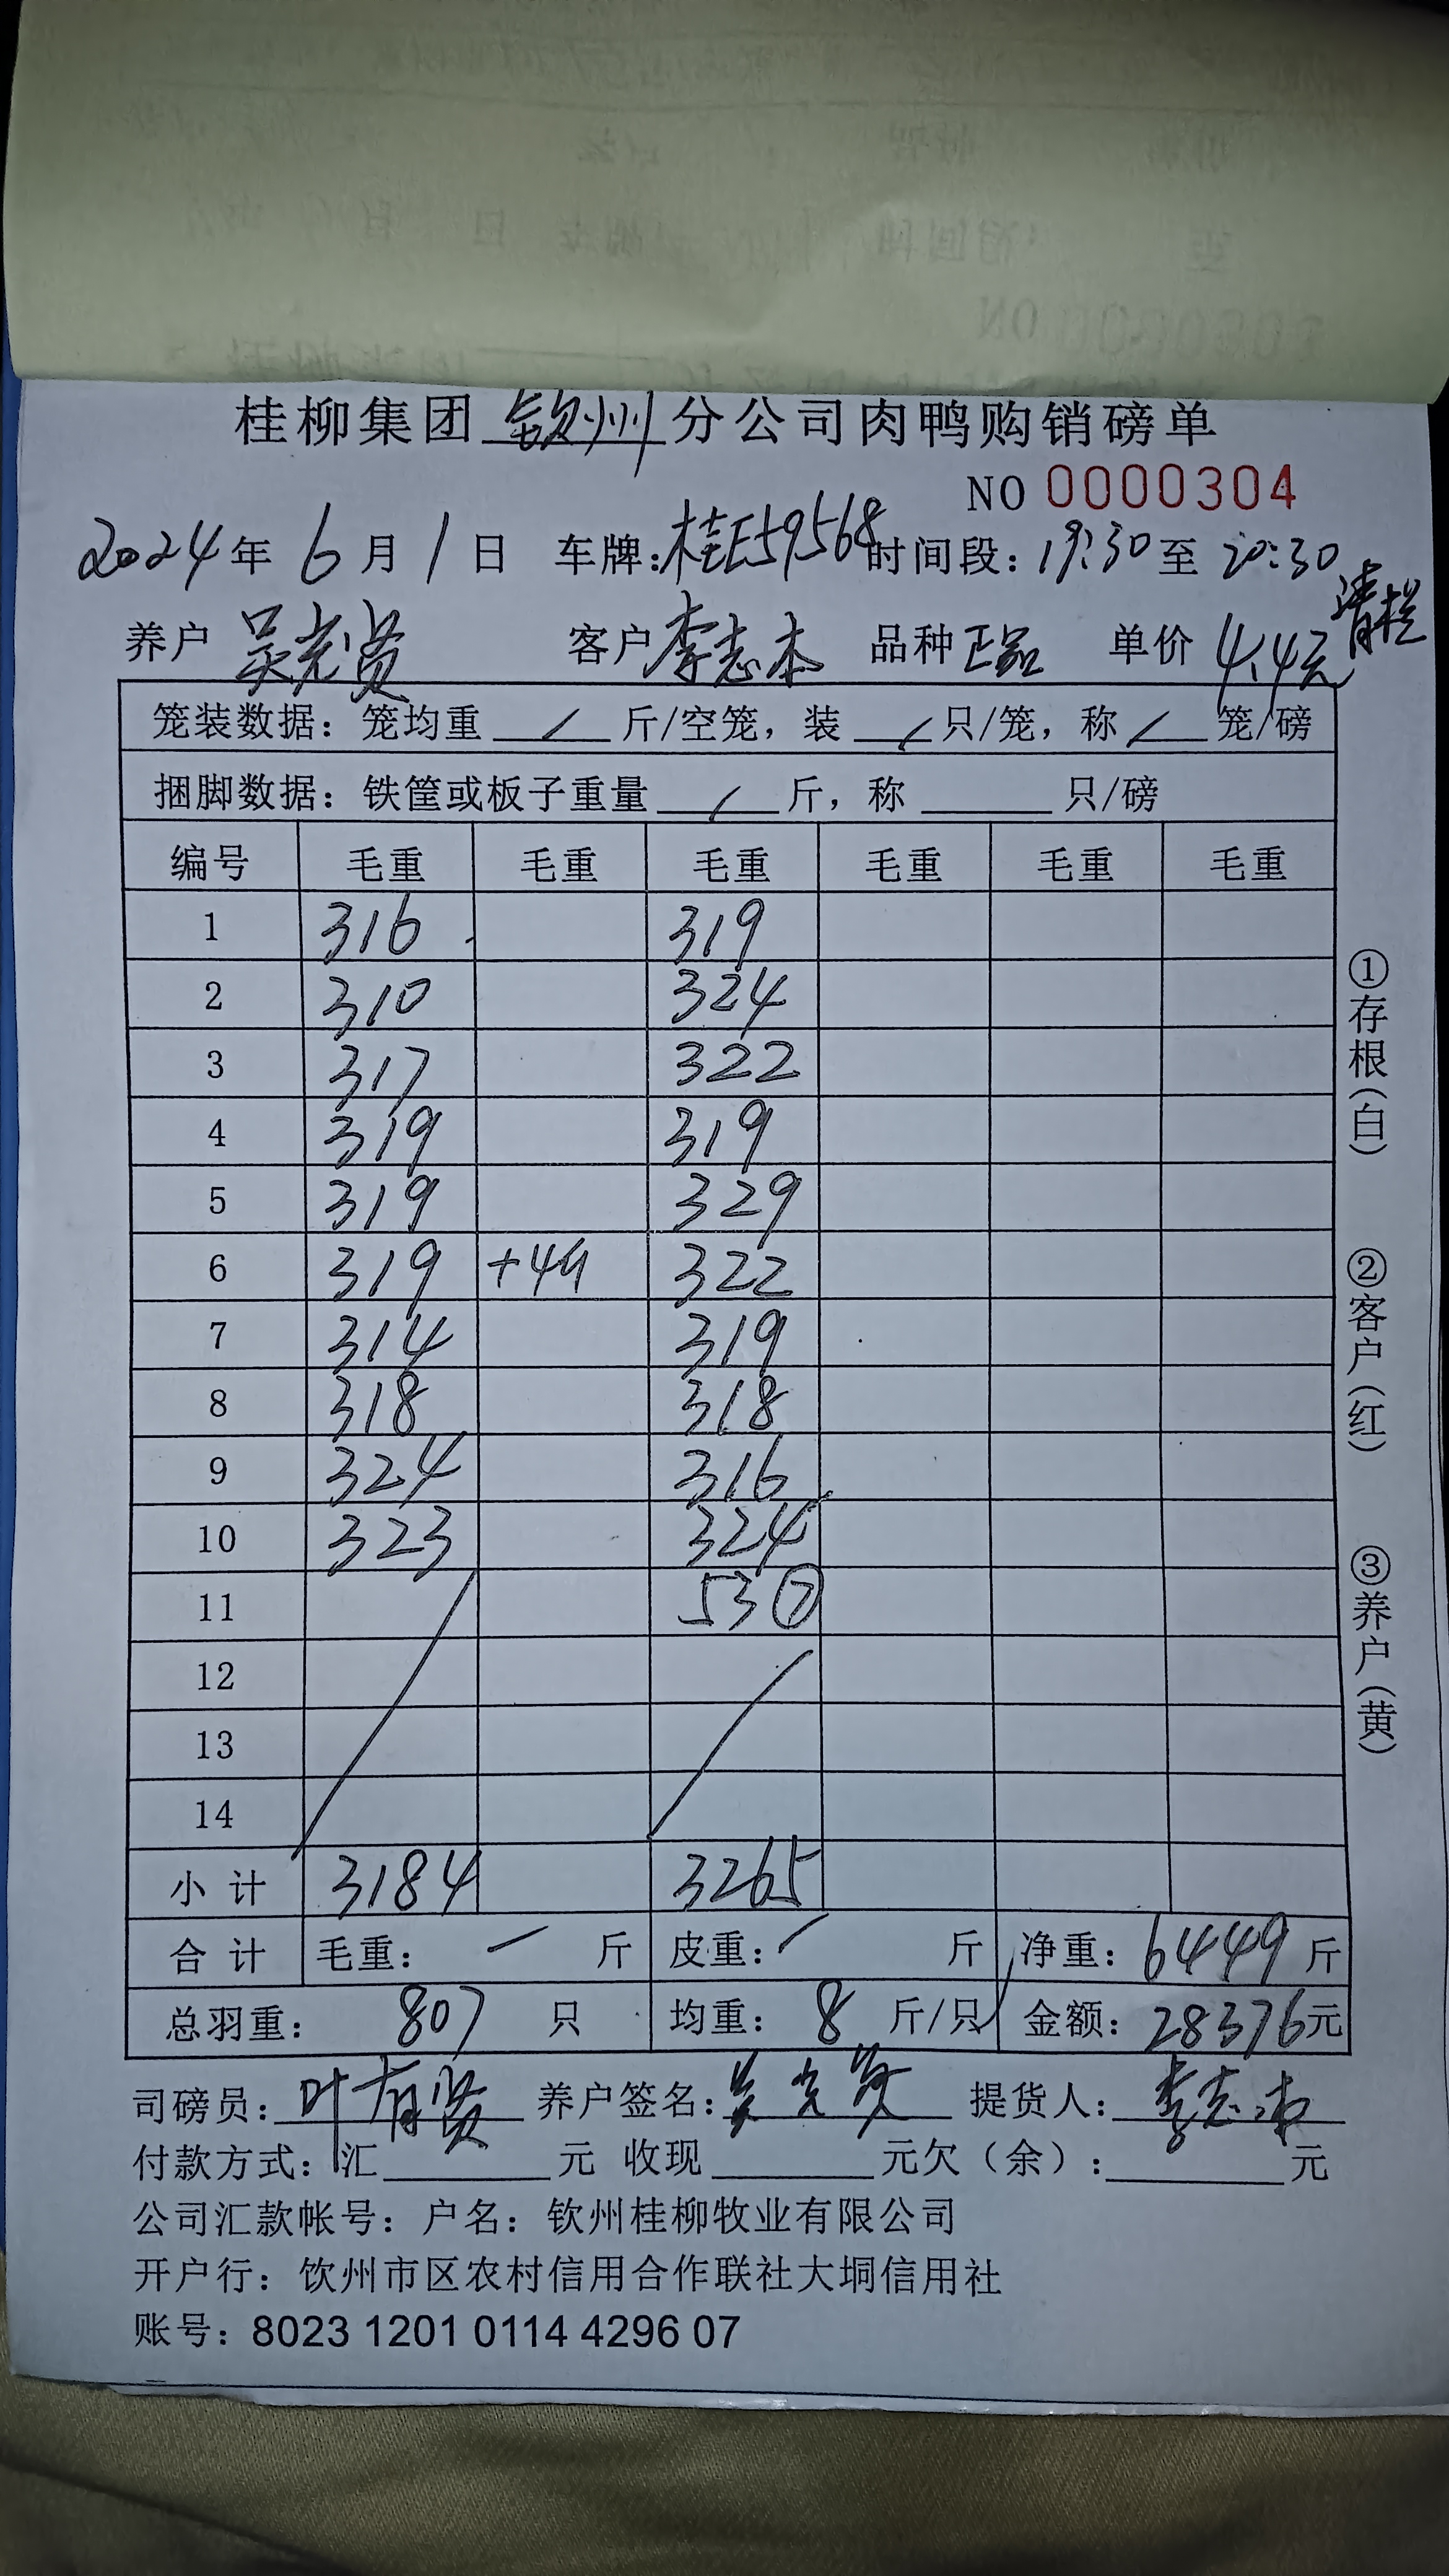 桂柳集团 钦州 分公司肉鸭购销磅单
NO 0000304
2024 年 6 月 1 日 车牌:桂E59568 时间段: 19:30 至 20:30
清栏
养户 吴光贤 客户 李志本 品种 正品 单价 4.4元
笼装数据: 笼均重 / 斤/空笼, 装 / 只/笼, 称 / 笼/磅
捆脚数据: 铁筐或板子重量 / 斤, 称 只/磅
编号 毛重 毛重 毛重 毛重 毛重 毛重
1 316 319
2 310 324
3 317 322
4 319 319
5 319 329
6 319 +4 322
7 314 319
8 318 318
9 324 316
10 323 324
11 53⑦
12
13
14
小计 3184 3265
合计 毛重: 斤 皮重: 斤 净重: 6449 斤
总羽重: 807 只 均重: 8 斤/只 金额: 28376元
司磅员: 叶有贤 养户签名: 吴光贤 提货人: 李志本
付款方式: 汇 元 收现 元欠(余): 元
公司汇款帐号: 户名: 钦州桂柳牧业有限公司
开户行: 钦州市区农村信用合作联社大垌信用社
账号: 8023 1201 0114 4296 07
①存根(白)
②客户(红)
③养户(黄)